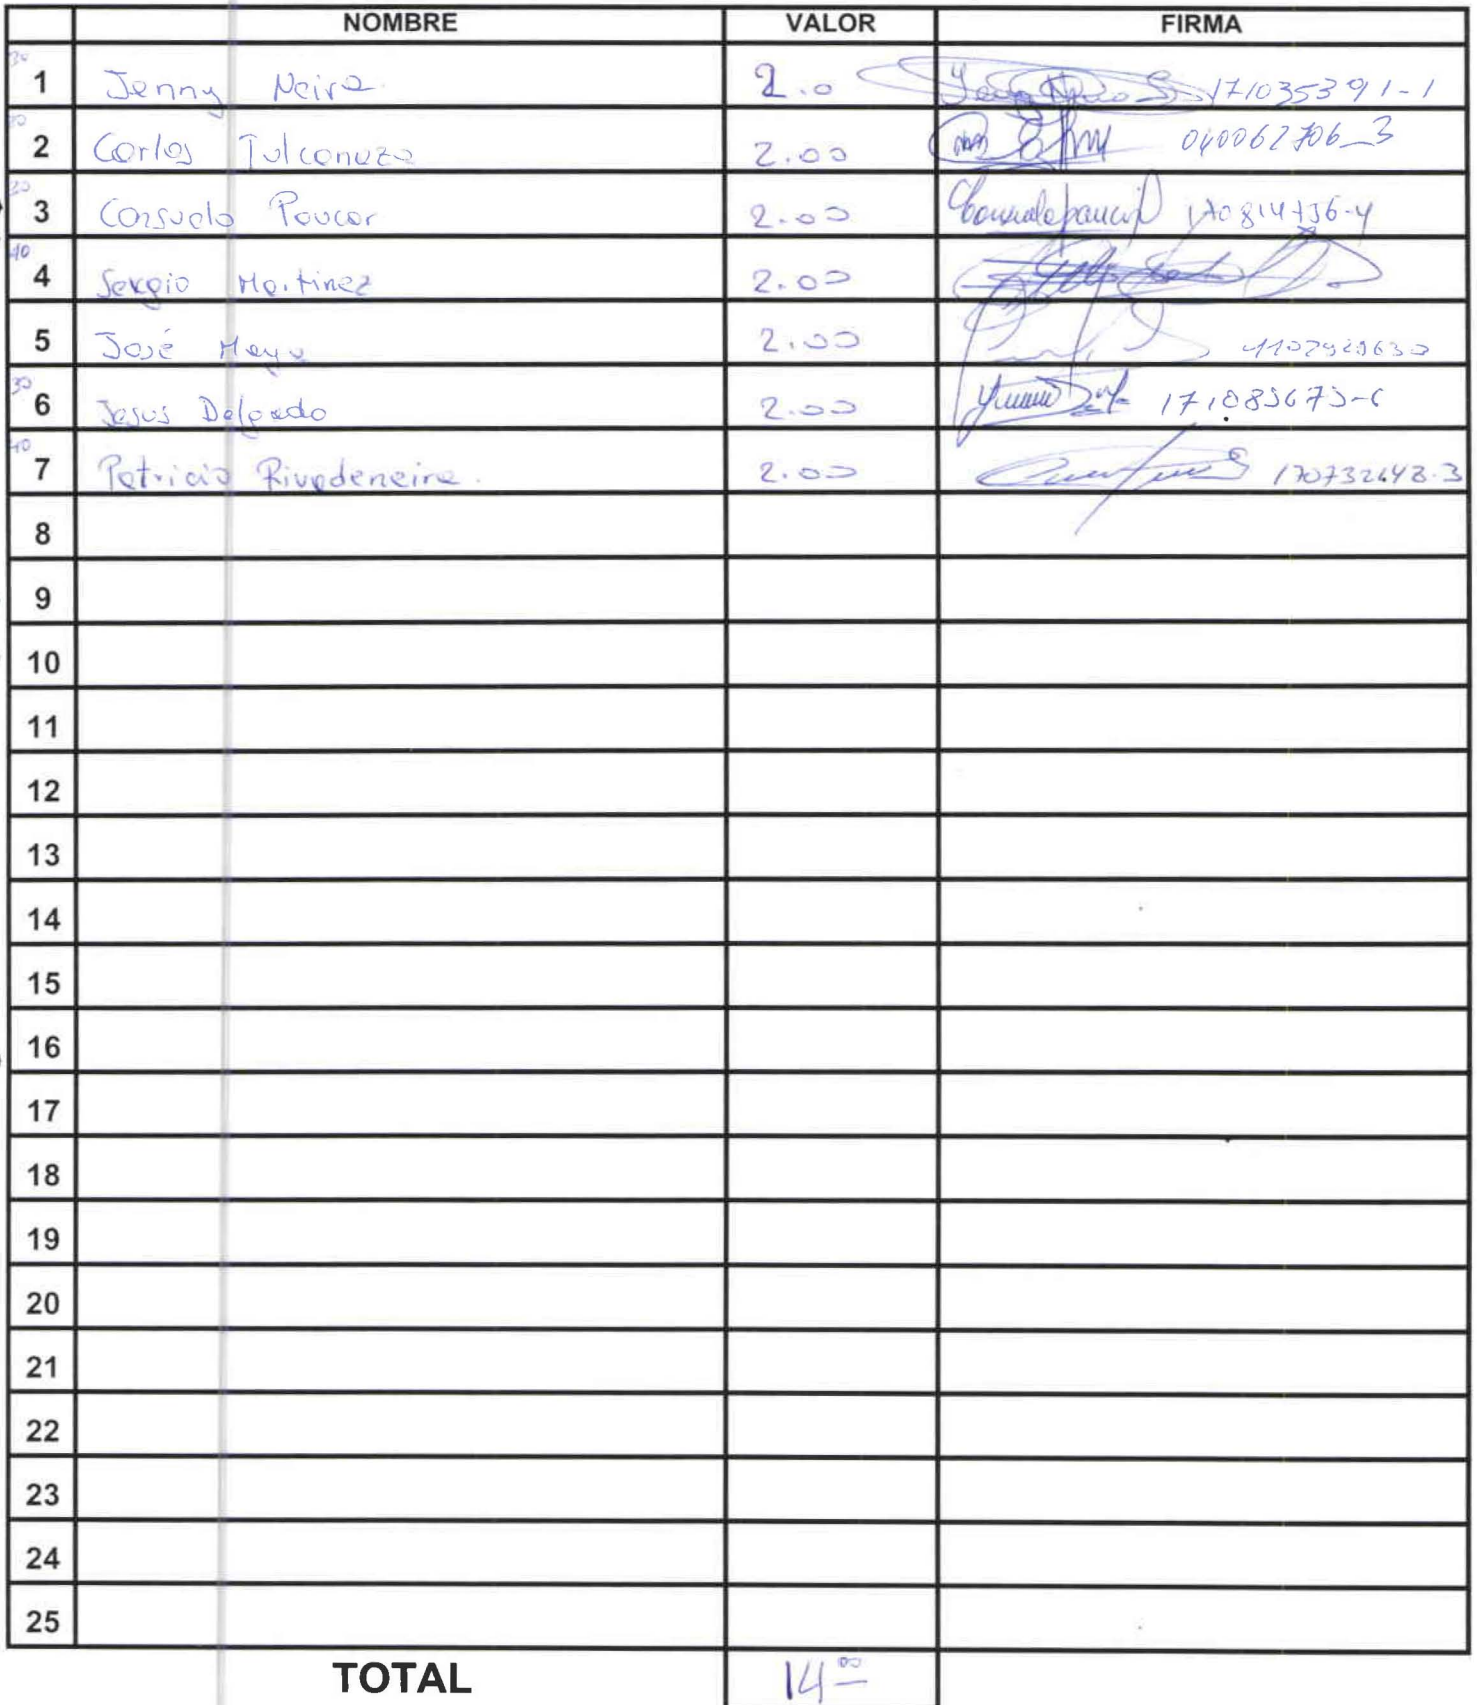 NOMBRE VALOR FIRMA
30 1 Jenny Neira 2.0 171035391-1
30 2 Carlos Tulcanaza 2.00 040062706-3
30 3 Consuelo Paucar 2.00 Consuelo paucar 170814736-4
40 4 Sergio Martinez 2.00
5 José Maya 2.00
30 6 Jesus Delgado 2.00
40 7 Patricio Rivadeneira. 2.00 170732648-3
8
9
10
11
12
13
14
15
16
17
18
19
20
21
22
23
24
25
TOTAL 14.00